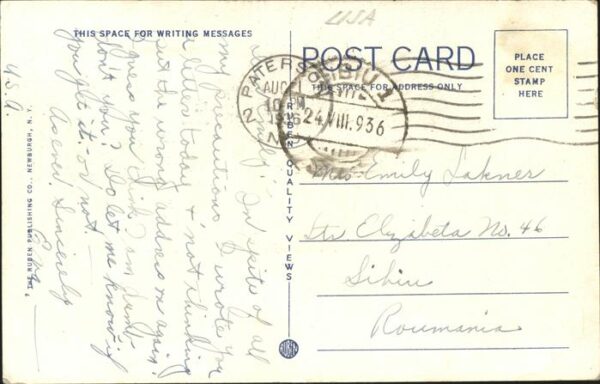 USA
THIS SPACE FOR WRITING MESSAGES
POST CARD
THIS SPACE FOR ADDRESS ONLY
PLACE
ONE CENT
STAMP
HERE
PATERSON
2
AUG
10 PM
1936
N.J.
SIBIU 1
24 VIII.936
Emily: In spite of all
my precautions I wrote you
a letter today & not thinking
put the wrong address on again.
I guess you think I am dumb
don't you? Do let me know if
you get it - or not.
As ever. Sincerely
U.S.A.
Mrs. Emily Lakner
Str. Elizabeta No. 46
Sibiu
Roumania
RUBEN QUALITY VIEWS
THE RUBEN PUBLISHING CO., NEWBURGH, N. Y.